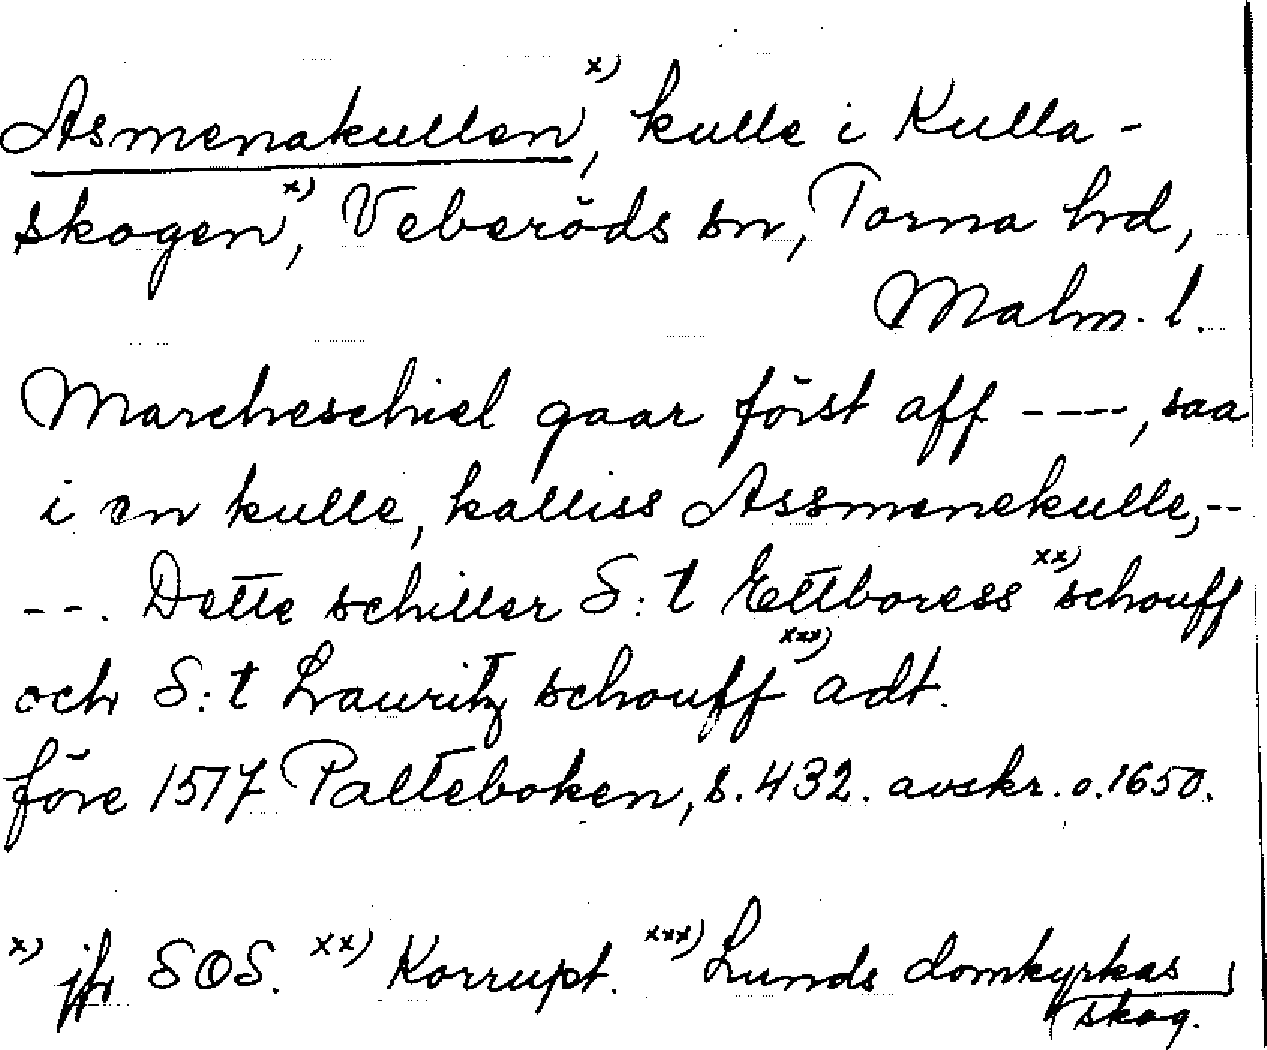 Asmenakullen x), kulle i Kulla-
skogen x), Veberöds sn, Torna hrd,
Malm. l.
Marcheschiel gaar först aff ----, saa
i en kulle, kalliss Assmenekulle, --
--. Dette schiller S:t Ettboress xx) schouff
och S:t Lauritz schouff xxx) adt.
före 1517 Palteboken, s. 432. avskr. o. 1650.
x) jfr SOS. xx) Korrupt. xxx) Lunds domkyrkas
skog.